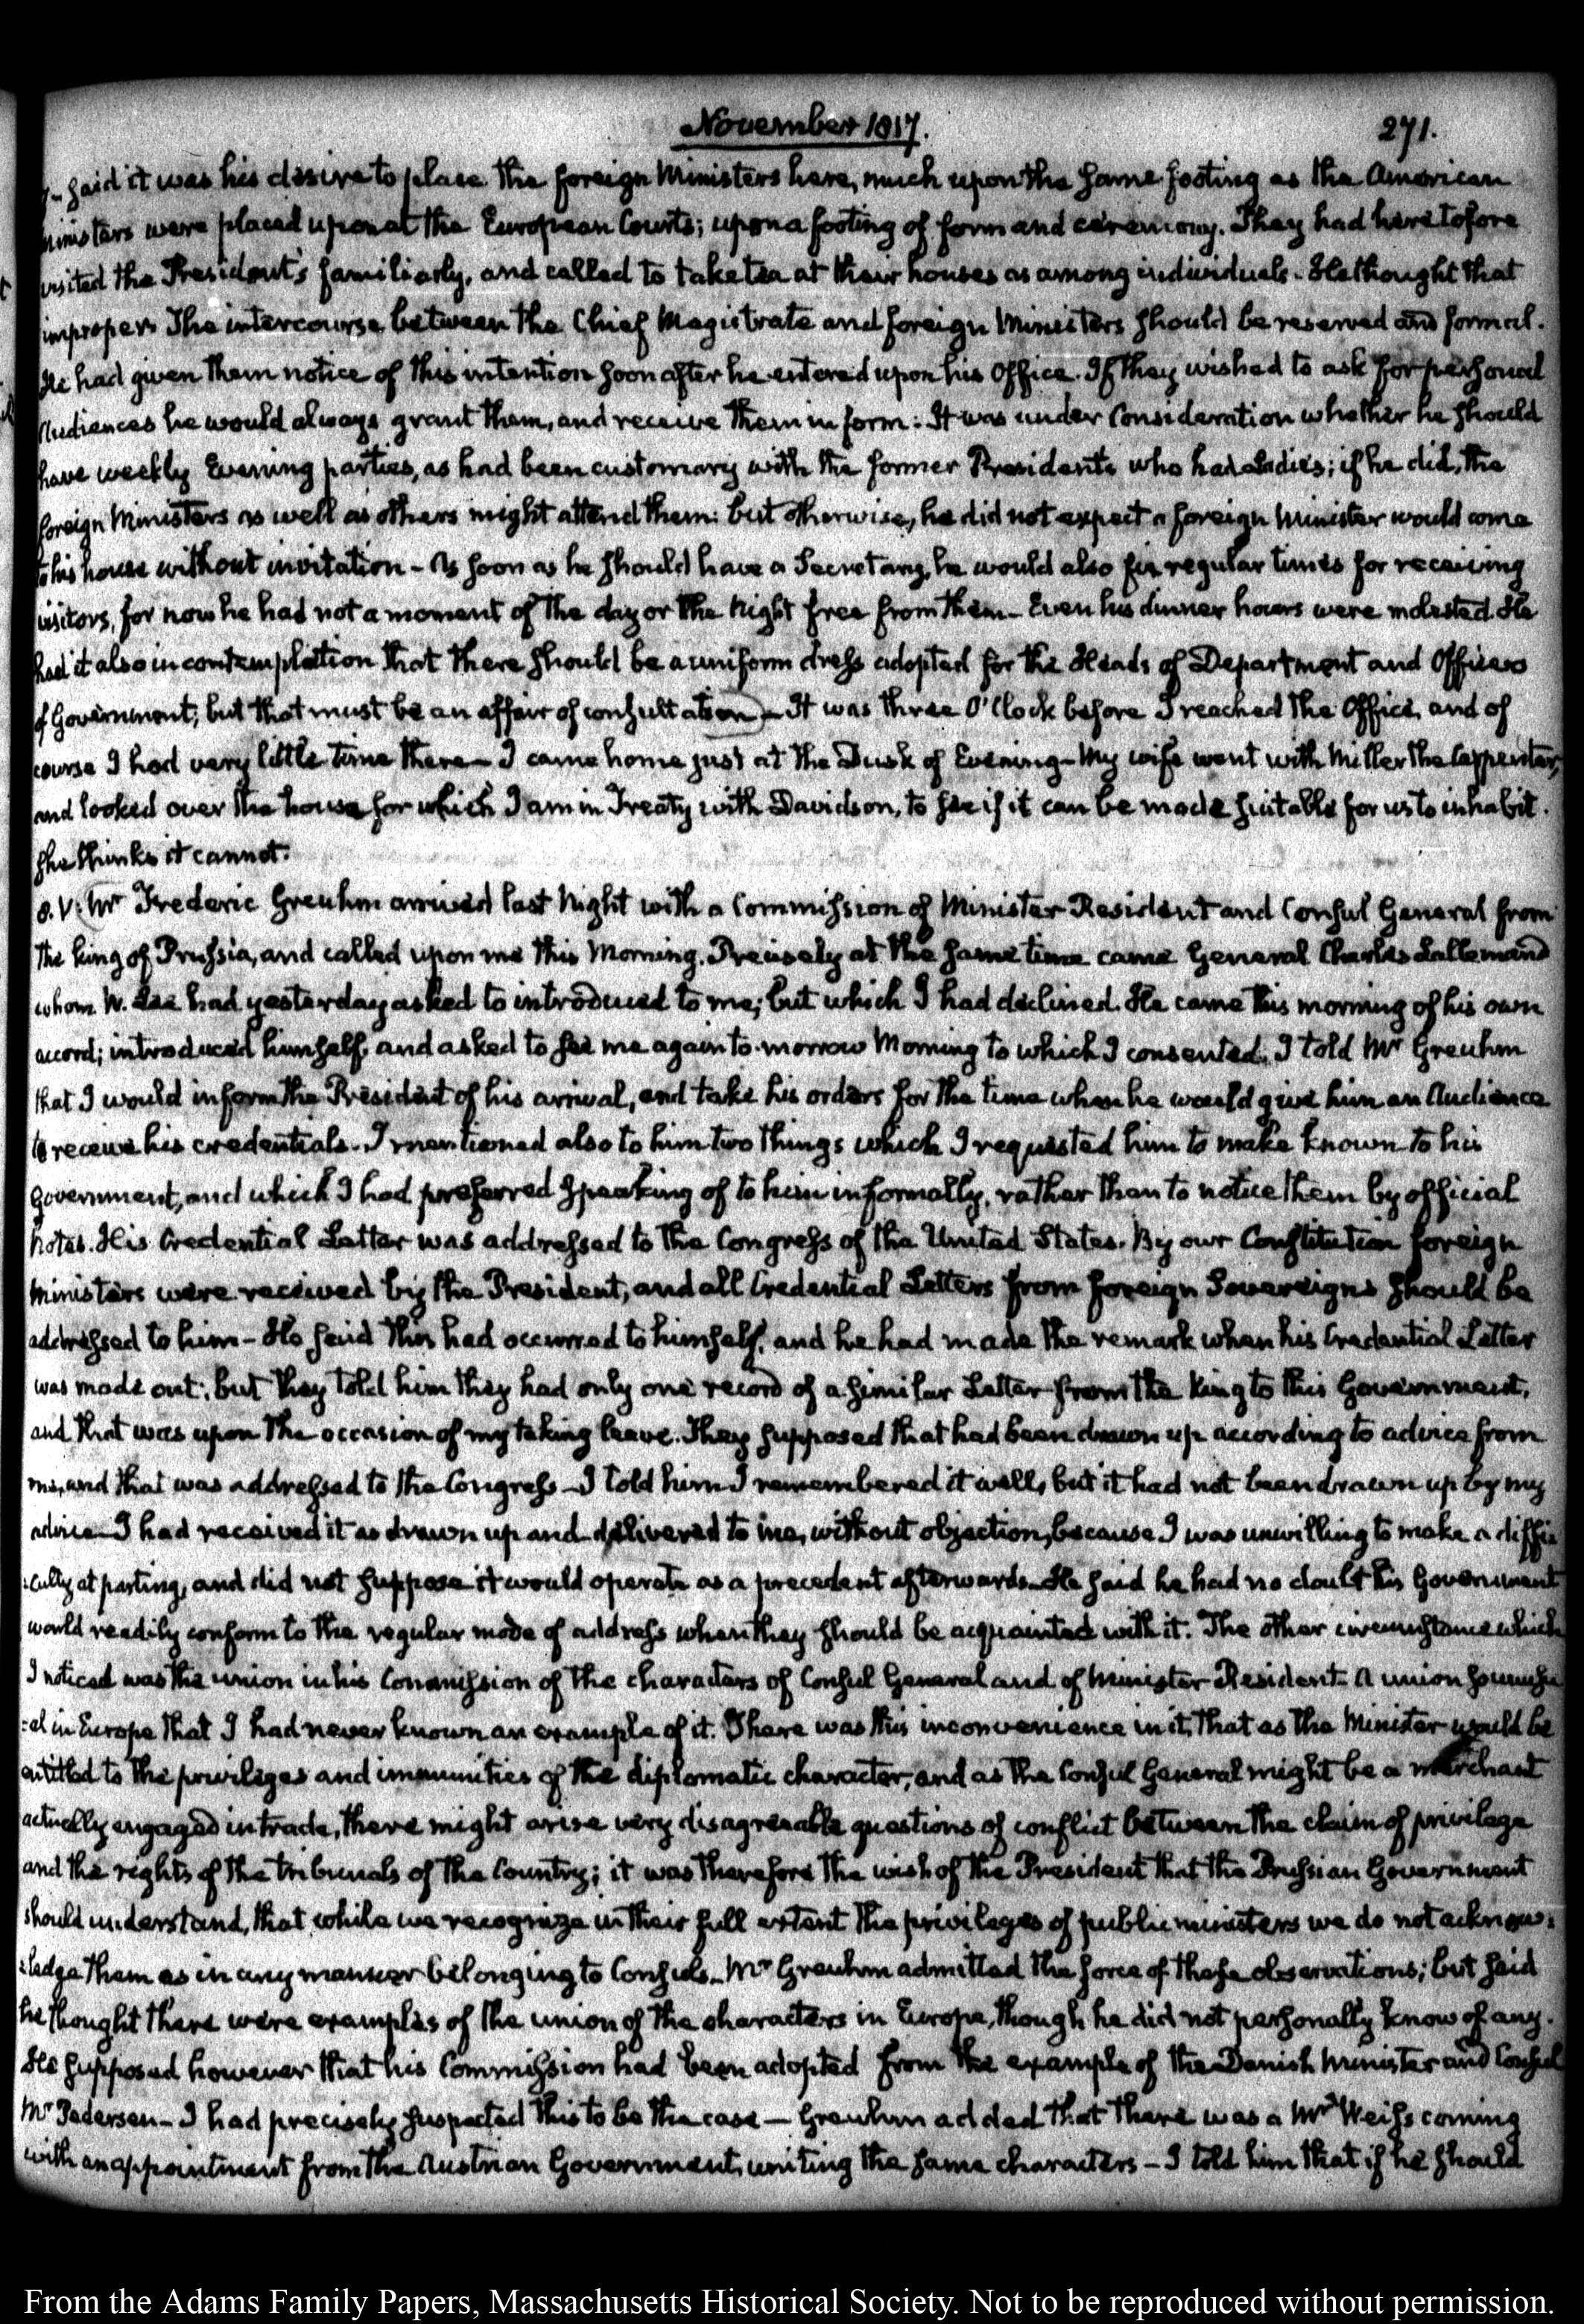 November 1817.
271.
7- said it was his desire to place the foreign Ministers here, much upon the same footing as the American
Ministers were placed upon at the European Courts; upon a footing of form and ceremony. They had heretofore
visited the President's familiarly, and called to take tea at their houses as among individuals. He thought that
improper. The intercourse between the Chief Magistrate and foreign Ministers should be reserved and formal.
He had given them notice of this intention soon after he entered upon his Office. If they wished to ask for personal
Audiences he would always grant them, and receive them in form: It was under Consideration whether he should
have weekly Evening parties, as had been customary with the former Presidents who had Ladies; if he did, the
foreign Ministers as well as others might attend them: but otherwise, he did not expect a foreign Minister would come
to his house without invitation- As soon as he should have a Secretary, he would also fix regular times for receiving
visitors, for now he had not a moment of the day or the Night free from them- Even his dinner hours were molested. He
had it also in contemplation that there should be a uniform dress adopted for the Heads of Department and Officers
of Government; but that must be an affair of consultation)- It was three O'Clock before I reached the Office, and of
course I had very little time there- I came home just at the Dusk of Evening- My wife went with Miller the Carpenter,
and looked over the house for which I am in Treaty with Davidson, to see if it can be made suitable for us to inhabit.
She thinks it cannot.
8. V: Mr Frederic Greuhm arrived last Night with a Commission of Minister Resident and Consul General from
the king of Prussia, and called upon me this Morning. Precisely at the same time came General Charles Lallemand
whom W. Lee had yesterday asked to introduced to me; but which I had declined. He came this morning of his own
accord; introduced himself, and asked to see me again to-morrow Morning to which I consented. I told Mr Greuhm
that I would inform the President of his arrival, and take his orders for the time when he would give him an Audience
to receive his credentials. I mentioned also to him two things which I requested him to make known to his
Government, and which I had preferred speaking of to him informally, rather than to notice them by official
Notes. His Credential Letter was addressed to the Congress of the United States. By our Constitution foreign
Ministers were received by the President, and all Credential Letters from foreign Sovereigns should be
addressed to him- He said this had occurred to himself, and he had made the remark when his Credential Letter
was made out; but they told him they had only one record of a similar Letter from the King to this Government,
and that was upon the occasion of my taking leave. They supposed that had been drawn up according to advice from
me, and that was addressed to the Congress- I told him I remembered it well, but it had not been drawn up by my
advice- I had received it as drawn up and delivered to me, without objection, because I was unwilling to make a diffi
:culty at parting, and did not suppose it would operate as a precedent afterwards- He said he had no doubt his Government
would readily conform to the regular mode of address when they should be acquainted with it. The other circumstance which
I noticed was the union in his Commission of the characters of Consul General and of Minister Resident- A union so unusu
:al in Europe that I had never known an example of it. There was this inconvenience in it, that as the Minister would be
entitled to the privileges and immunities of the diplomatic character, and as the Consul General might be a merchant
actually engaged in trade, there might arise very disagreeable questions of conflict between the claim of privilege
and the rights of the tribunals of the Country; it was therefore the wish of the President that the Prussian Government
should understand, that while we recognize in their full extent the privileges of public ministers we do not acknow:
:ledge them as in any manner belonging to Consuls- Mr Greuhm admitted the force of these observations; but said
he thought there were examples of the union of the characters in Europe, though he did not personally know of any.
He supposed however that his Commission had been adopted from the example of the Danish Minister and Consul
Mr Pedersen- I had precisely suspected this to be the case- Greuhm added that there was a Mr Weiss coming
with an appointment from the Austrian Government, uniting the same characters- I told him that if he should
From the Adams Family Papers, Massachusetts Historical Society. Not to be reproduced without permission.